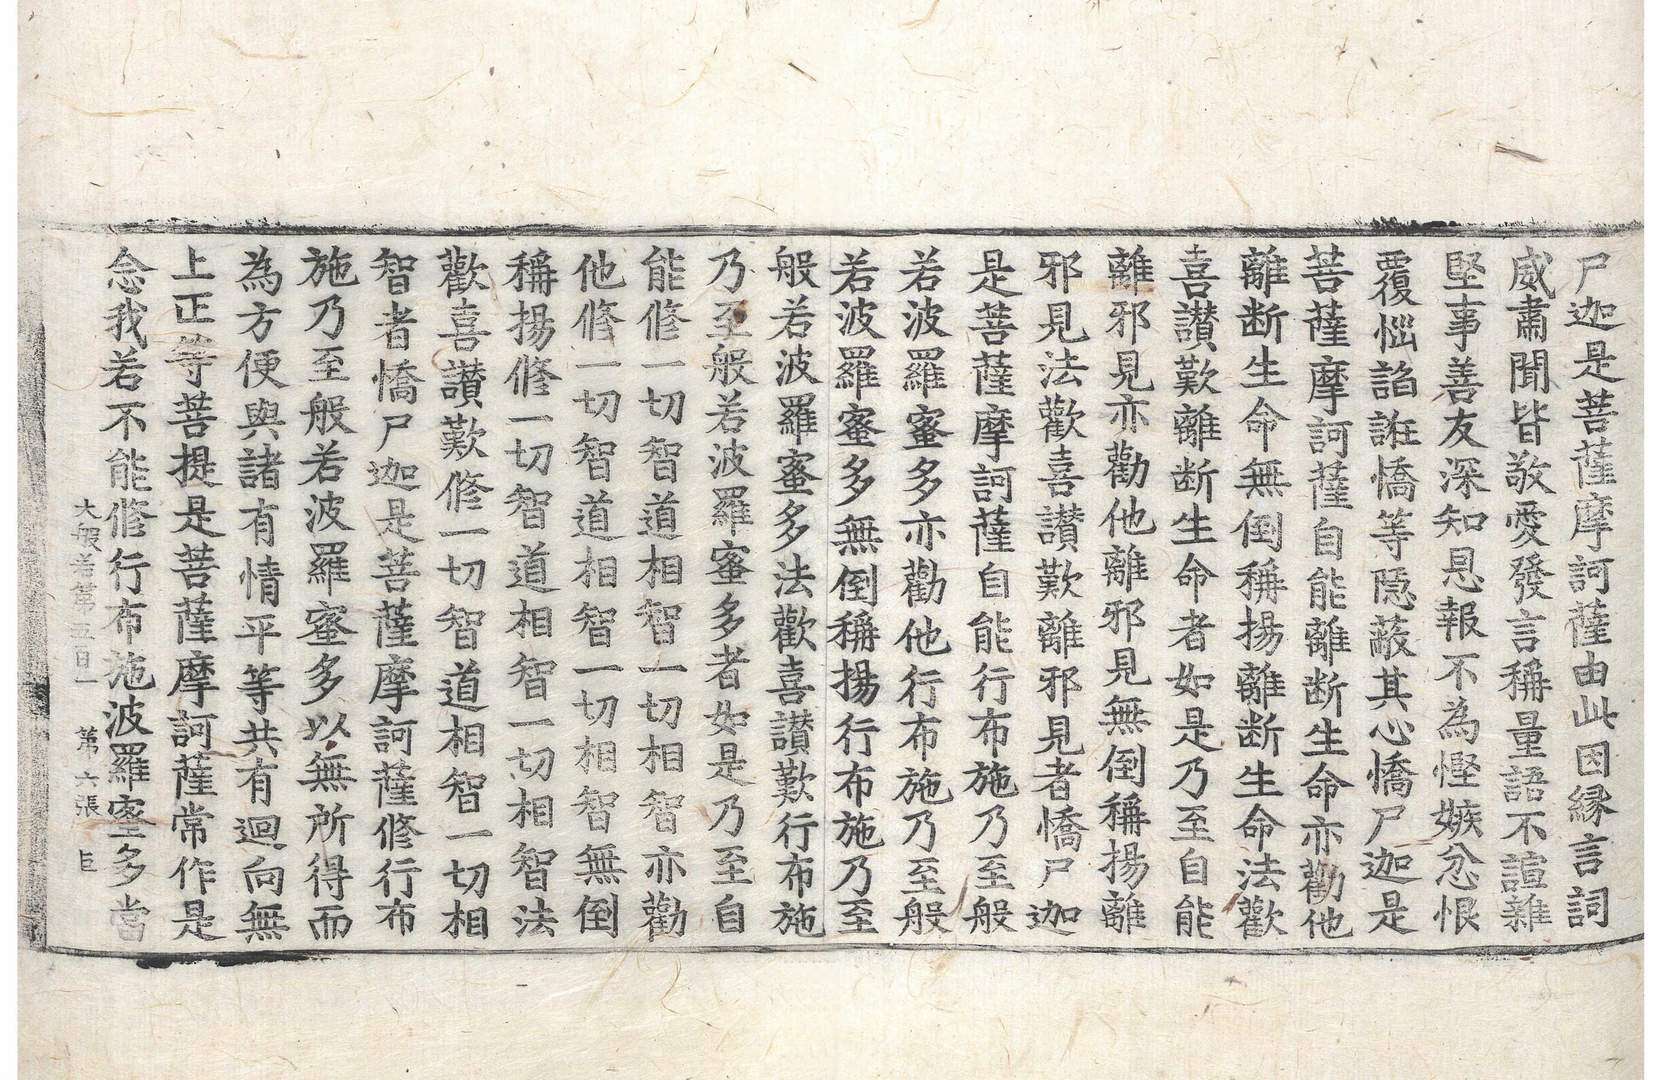 尸迦是菩薩摩訶薩由此因縁言詞
威肅聞皆敬愛發言稱量語不諠雜
堅事善友深知恩報不為慳嫉忿恨
覆惱諂誑憍等隱蔽其心憍尸迦是
菩薩摩訶薩自能離断生命亦勸他
離断生命無倒稱揚離断生命法歡
喜讚歎離断生命者如是乃至自能
離邪見亦勸他離邪見無倒稱揚離
邪見法歡喜讚歎離邪見者憍尸迦
是菩薩摩訶薩自能行布施乃至般
若波羅蜜多亦勸他行布施乃至般
若波羅蜜多無倒稱揚行布施乃至
般若波羅蜜多法歡喜讚歎行布施
乃至般若波羅蜜多者如是乃至自
能修一切智道相智一切相智亦勸
他修一切智道相智一切相智無倒
稱揚修一切智道相智一切相智法
歡喜讚歎修一切智道相智一切相
智者憍尸迦是菩薩摩訶薩修行布
施乃至般若波羅蜜多以無所得而
為方便與諸有情平等共有迴向無
上正等菩提是菩薩摩訶薩常作是
念我若不能修行布施波羅蜜多當
大般若第五百一 第六張 巨